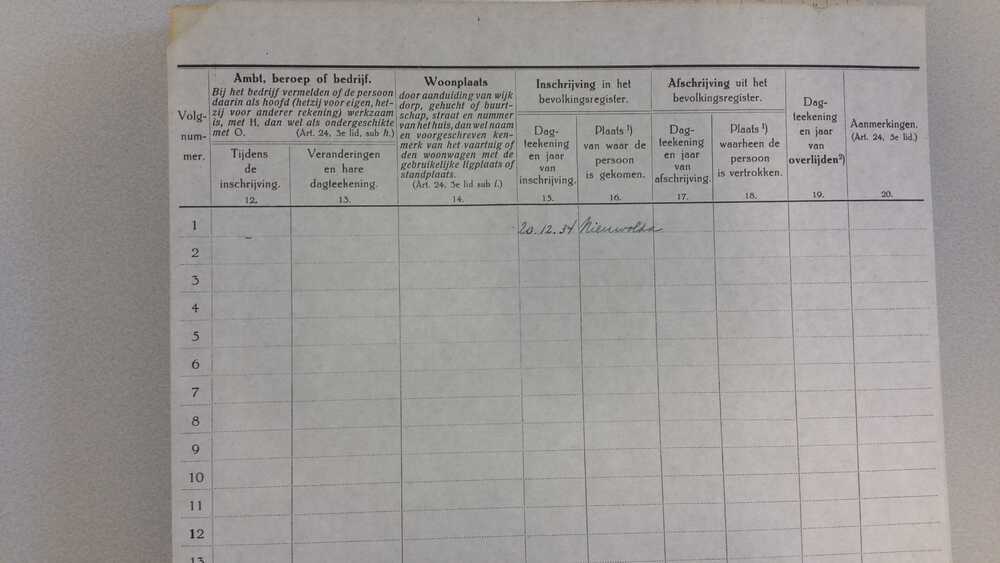 Volg-
num-
mer.
Ambt, beroep of bedrijf.
Bij het bedrijf vermelden of de persoon
daarin als hoofd (hetzij voor eigen, het-
zij voor anderer rekening) werkzaam
is, met H, dan wel als ondergeschikte
met O. (Art. 24, 3e lid, sub h.)
Tijdens
de
inschrijving.
12.
Veranderingen
en hare
dagteekening.
13.
Woonplaats
door aanduiding van wijk
dorp, gehucht of buurt-
schap, straat en nummer
van het huis, dan wel naam
en voorgeschreven ken-
merk van het vaartuig of
den woonwagen met de
gebruikelijke ligplaats of
standplaats.
(Art. 24, 3e lid sub i.)
14.
Inschrijving in het
bevolkingsregister.
Dag-
teekening
en jaar
van
inschrijving.
15.
Plaats ¹)
van waar de
persoon
is gekomen.
16.
Afschrijving uit het
bevolkingsregister.
Dag-
teekening
en jaar
van
afschrijving.
17.
Plaats ¹)
waarheen de
persoon
is vertrokken.
18.
Dag-
teekening
en jaar
van
overlijden²)
19.
Aanmerkingen.
(Art. 24, 3e lid.)
20.
1 20.12.34 Nieuwolda
2
3
4
5
6
7
8
9
10
11
12
13